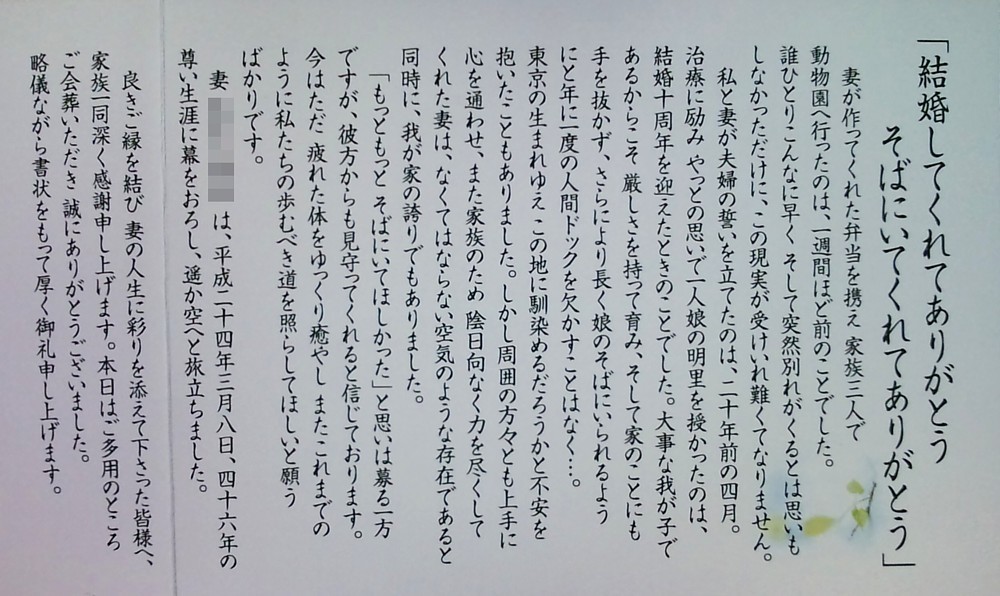 「結婚してくれてありがとう
そばにいてくれてありがとう」
妻が作ってくれた弁当を携え 家族三人で
動物園へ行ったのは、一週間ほど前のことでした。
誰ひとりこんなに早く そして突然別れがくるとは思いも
しなかっただけに、この現実が受けいれ難くてなりません。
私と妻が夫婦の誓いを立てたのは、二十年前の四月。
治療に励み やっとの思いで一人娘の明里を授かったのは、
結婚十周年を迎えたときのことでした。大事な我が子で
あるからこそ 厳しさを持って育み、そして家のことにも
手を抜かず、さらにより長く娘のそばにいられるよう
にと年に一度の人間ドックを欠かすことはなく…。
東京の生まれゆえ この地に馴染めるだろうかと不安を
抱いたこともありました。しかし周囲の方々とも上手に
心を通わせ、また家族のため 陰日向なく力を尽くして
くれた妻は、なくてはならない空気のような存在であると
同時に、我が家の誇りでもありました。
「もっともっと そばにいてほしかった」と思いは募る一方
ですが、彼方からも見守ってくれると信じております。
今はただ 疲れた体をゆっくり癒やし またこれまでの
ように私たちの歩むべき道を照らしてほしいと願う
ばかりです。
妻 は、平成二十四年三月八日、四十六年の
尊い生涯に幕をおろし、遥か空へと旅立ちました。
良きご縁を結び 妻の人生に彩りを添えて下さった皆様へ、
家族一同深く感謝申し上げます。本日はご多用のところ
ご会葬いただき 誠にありがとうございました。
略儀ながら書状をもって厚く御礼申し上げます。